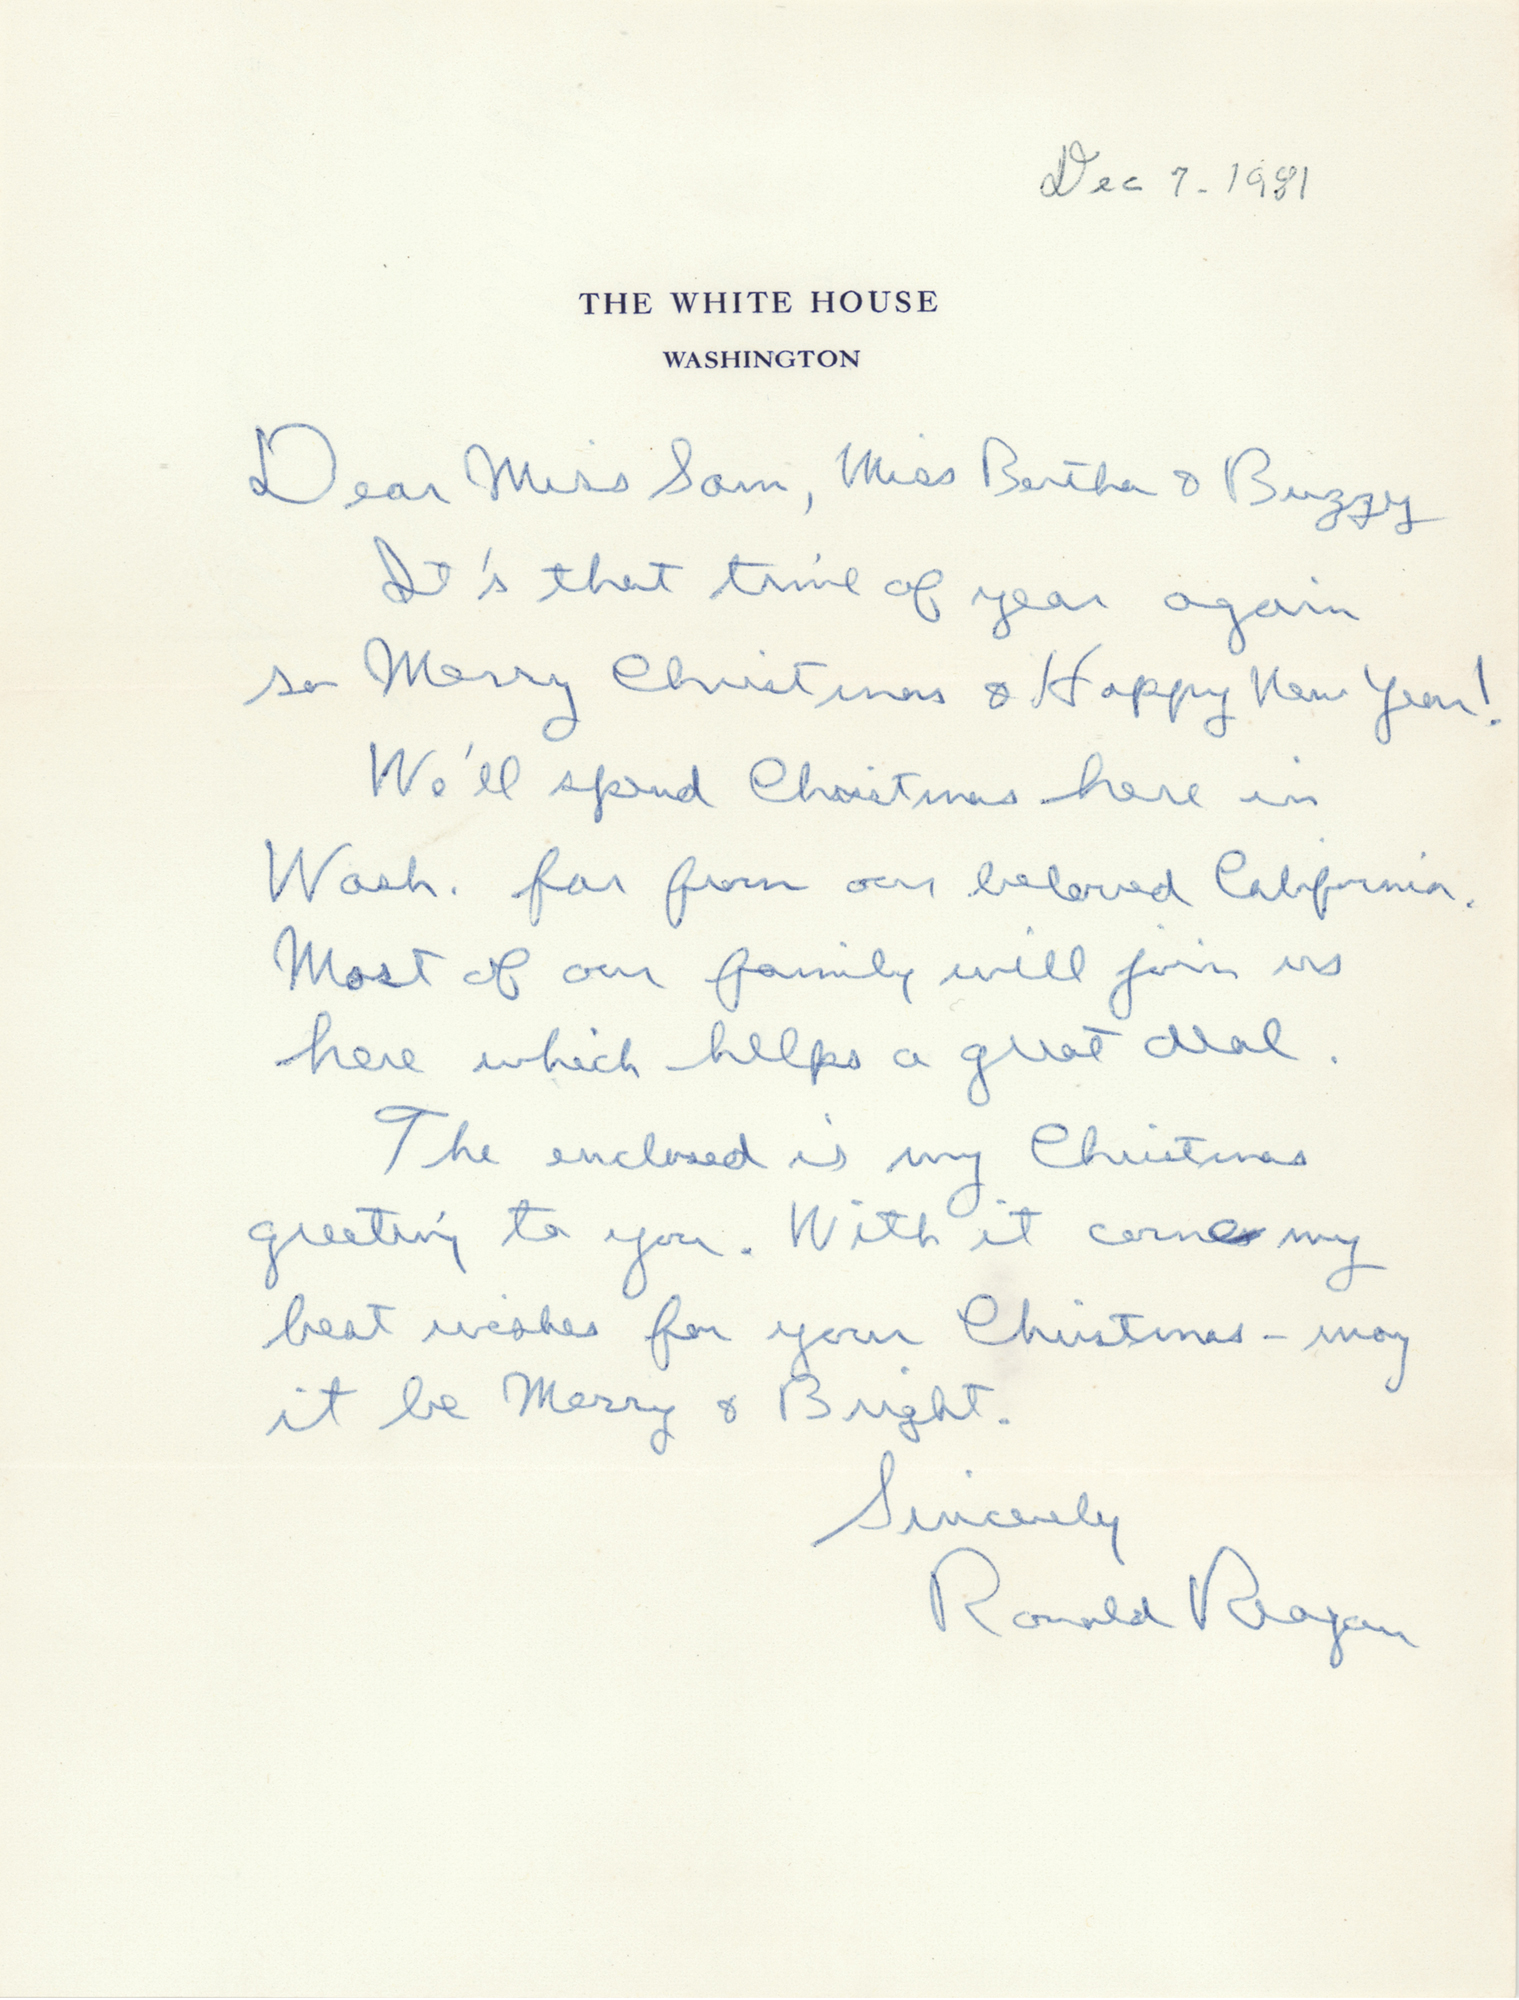 Dec 7-1981
THE WHITE HOUSE
WASHINGTON
Dear Miss Sam, Miss Bertha & Buzzy
It's that time of year again
so Merry Christmas & Happy New Year!
We'll spend Christmas here in
Wash. far from our beloved California.
Most of our family will join us
here which helps a great deal.
The enclosed is my Christmas
greeting to you. With it comes my
best wishes for your Christmas - may
it be Merry & Bright.
Sincerely
Ronald Reagan